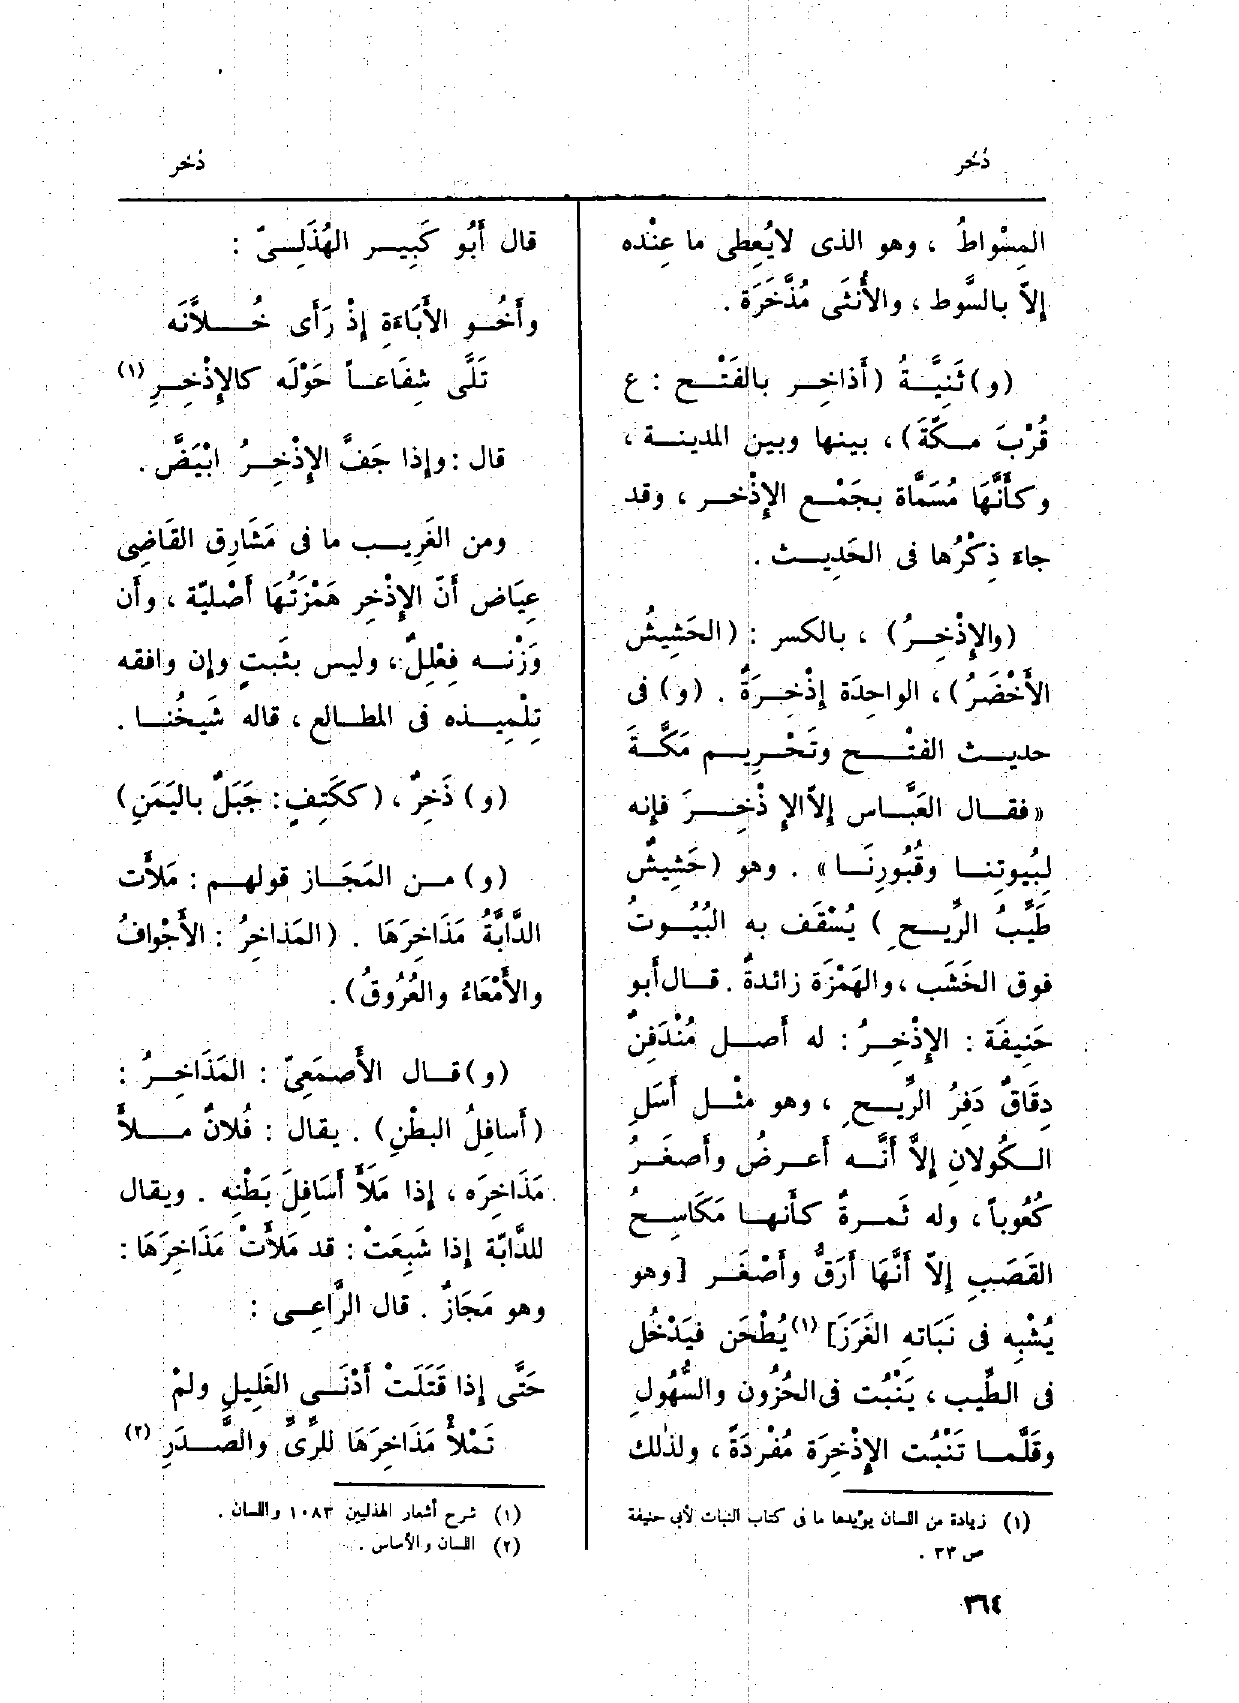 ذخر
ذخر
المِسْواطُ ، وهو الذى لايُعطِى ما عِنْده
إلاّ بالسَّوط ، والأُنثَى مُذَّخَرَة .
(و) ثَنِيَّةُ (أَذاخِر بالفَتْح : ع
قُرْبَ مكَّةَ) ، بينها وبين المدينة ،
وكأَنَّهَا مُسَمَّاة بجَمْع الإِذْخر ، وقد
جاءَ ذِكْرُها فى الحَدِيث .
(والإِذْخِرُ) ، بالكسر : (الحَشِيشُ
الأَخْضَرُ) ، الواحِدَة إِذْخِرَةٌ . (و) فى
حديث الفتْح وتَحْرِيم مَكَّةَ
«فقال العَبَّاس إلاّ الإِذْخِرَ فإنه
لِبُيوتِنا وقُبُورِنَا» . وهو (حَشِيشٌ
طَيِّبُ الرِّيح ) يُسْقَف به البُيُوتُ
فوق الخَشَب ، والهَمْزَة زائدةٌ . قال أَبو
حَنِيفَة : الإِذْخِرُ : له أَصل مُنْدَفِنٌ
دِقَاقٌ دَفِرُ الرِّيح ، وهو مثْل أَسَلِ
الكُولانِ إلاَّ أَنَّه أَعرضُ وأَصغَرُ
كُعُوباً ، وله ثَمرةٌ كأَنها مَكَاسِحُ
القَصَبِ إلاّ أَنَّهَا أَرَقُّ وأَصْغَر [وهو
يُشْبِه فى نَبَاتهِ الغَرَزَ] (١) يُطْحَن فيَدْخُل
فى الطِّيب ، يَنْبُت فى الحُزُون والسُّهُولِ
وقَلَّما تَنْبُت الإِذْخِرَة مُفْرَدَةً ، ولذٰلك
(١) زيادة من اللسان يؤيدها ما فى كتاب النبات لأبي حنيفة
ص ٣٣ .
قال أَبُو كَبِير الهُذَلِىّ :
وأَخُو الأَبَاءَةِ إِذْ رَأَى خُلاَّنَه
تَلَّى شِفَاعاً حَوْلَه كالإِذْخِرِ (١)
قال : وإذا جَفَّ الإِذْخِرُ ابْيَضَّ .
ومن الغَرِيب ما فى مَشَارِق القَاضِى
عِيَاض أَنّ الإِذْخِر هَمْزَتُهَا أَصْلِيّة ، وأَن
وَزْنه فِعْلِلٌ ، وليس بثَبتٍ وإن وافقه
تِلْمِيذه فى المطالع ، قاله شَيخُنا .
(و) ذَخِرٌ ، (ككَتِفٍ : جَبَلٌ باليَمَنِ)
(و) من المَجَاز قولهم : مَلأَت
الدَّابَّةُ مَذَاخِرَهَا . (المَذاخِرُ : الأَجْوافُ
والأَمْعَاءُ والعُرُوقُ) .
(و) قال الأَصمَعِىّ : المَذَاخِرُ :
(أَسافِلُ البطْنِ) . يقال : فُلانٌ ملأَ
مَذَاخِرَه ، إذا مَلأَ أَسَافِلَ بَطْنِه . ويقال
للدَّابّة إذا شَبِعَتْ : قد مَلأَتْ مَذَاخِرَهَا :
وهو مَجَازٌ . قال الرَّاعِى :
حَتَّى إذا قَتَلَتْ أَدْنَى الغَلِيلِ ولمْ
تَمْلأْ مَذَاخِرَهَا للرِّىِّ والصَّدَرِ (٢)
(١) شرح أشعار الهذليين ١٠٨٣ واللسان .
(٢) اللسان والأساس .
٣٦٤